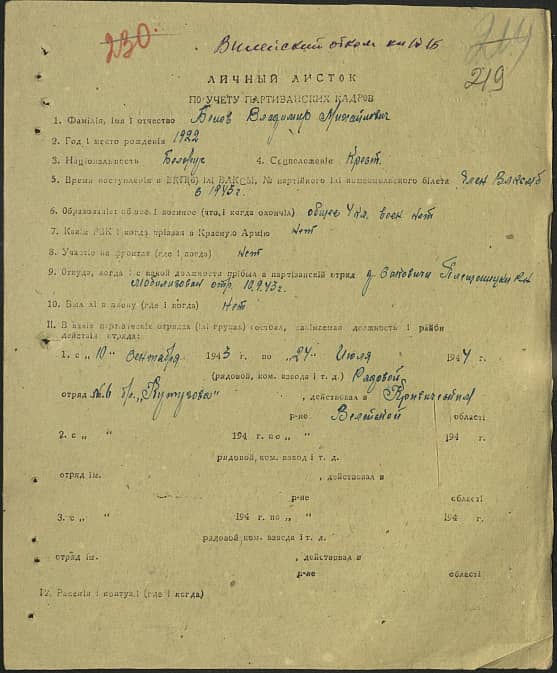 230
Вилейский отком кп(б)Б
219
ЛИЧНЫЙ ЛИСТОК
ПО УЧЕТУ ПАРТИЗАНСКИХ КАДРОВ
1. Фамілія, імя і отчество Белов Владимир Михайлович
2. Год і место рождения 1922
3. Національность Белорус 4. Соцположеніе Крест.
5. Время поступленія в ВКП(б) ілі ВЛКСМ, № партійного ілі комсомольского білета Член ВЛКСМ
в 1943г.
6. Образованіе: общее і военное (что, і когда окончіл) общее 4 кл. воен нет
7. Какім РВК і когда прізван в Красную Армію Нет
8. Участіе на фронтах (где і когда) нет
9. Откуда, когда і с какой должності прібыл в партізанскій отряд д. Плещеницки р.н.
Мобилизован отр. 10.9.43г.
10. Был лі в плену (где і когда) Нет
11. В какіх партізанскіх отрядах (ілі групах) состоял, занімаемая должность і район
действія отряда:
1. с „ 10 " сентября 1943 г. по „ 24 " Июля 1944 г.
(рядовой, ком. взвода і т. д.) Рядовой
отряд №6 бр. „Кутузова" , действовал в Кривичском
р-не Вилейской області
2. с „ " 194 г. по „ " 194 г.
рядовой, ком. взвод і т. д.
отряд ім. , действовал в
р-не області
3. с „ " 194 г. по „ " 194 г.
рядовой, ком. взвода і т. д.
отряд ім. , действовал в
р-не області
IV. Ранения і контузіі (где і когда)